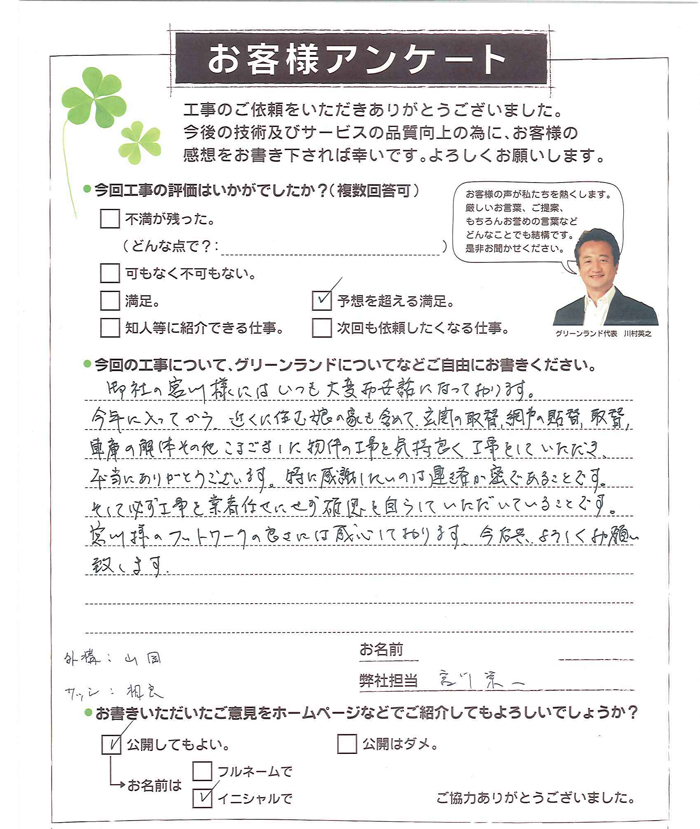 お客様アンケート
工事のご依頼をいただきありがとうございました。
今後の技術及びサービスの品質向上の為に、お客様の
感想をお書き下されば幸いです。よろしくお願いします。
●今回工事の評価はいかがでしたか?(複数回答可)
お客様の声が私たちを熱くします。
厳しいお言葉、ご提案、
もちろんお誉めの言葉など
どんなことでも結構です。
是非お聞かせください。
グリーンランド代表 川村英之
不満が残った。
(どんな点で?: )
可もなく不可もない。
満足。
予想を超える満足。
知人等に紹介できる仕事。
次回も依頼したくなる仕事。
●今回の工事について、グリーンランドについてなどご自由にお書きください。
御社の宮川様にはいつも大変お世話になっております。
今年に入ってから、近くに住む娘の家も含めて、玄関の取替、網戸の貼替、取替、
車庫の解体その他こまごました物件の工事を気持良く工事をしていただき、
本当にありがとうございます。特に感謝したいのは連絡が密であることです。
そして必ず工事を業者任せにせず確認を自らしていただいていることです。
宮川様のフットワークの良さには感心しております。今後共、よろしくお願い
致します。
外構:山田
サッシ:相良
お名前
弊社担当 宮川 京一
●お書きいただいたご意見をホームページなどでご紹介してもよろしいでしょうか?
公開してもよい。
公開はダメ。
お名前は
フルネームで
イニシャルで
ご協力ありがとうございました。